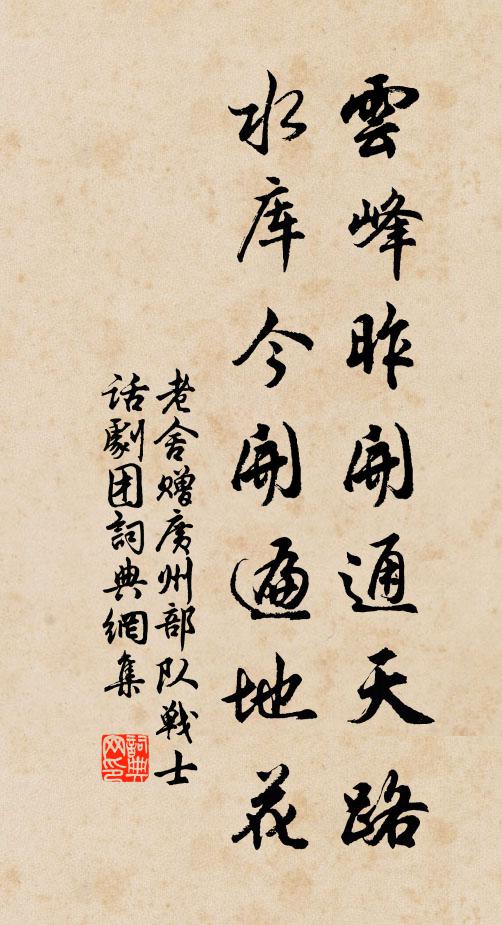 雲峰昨開通天路
水库今開遍地花
老舍赠廣州部队戰士
话劇团詞典網集
詞典网印